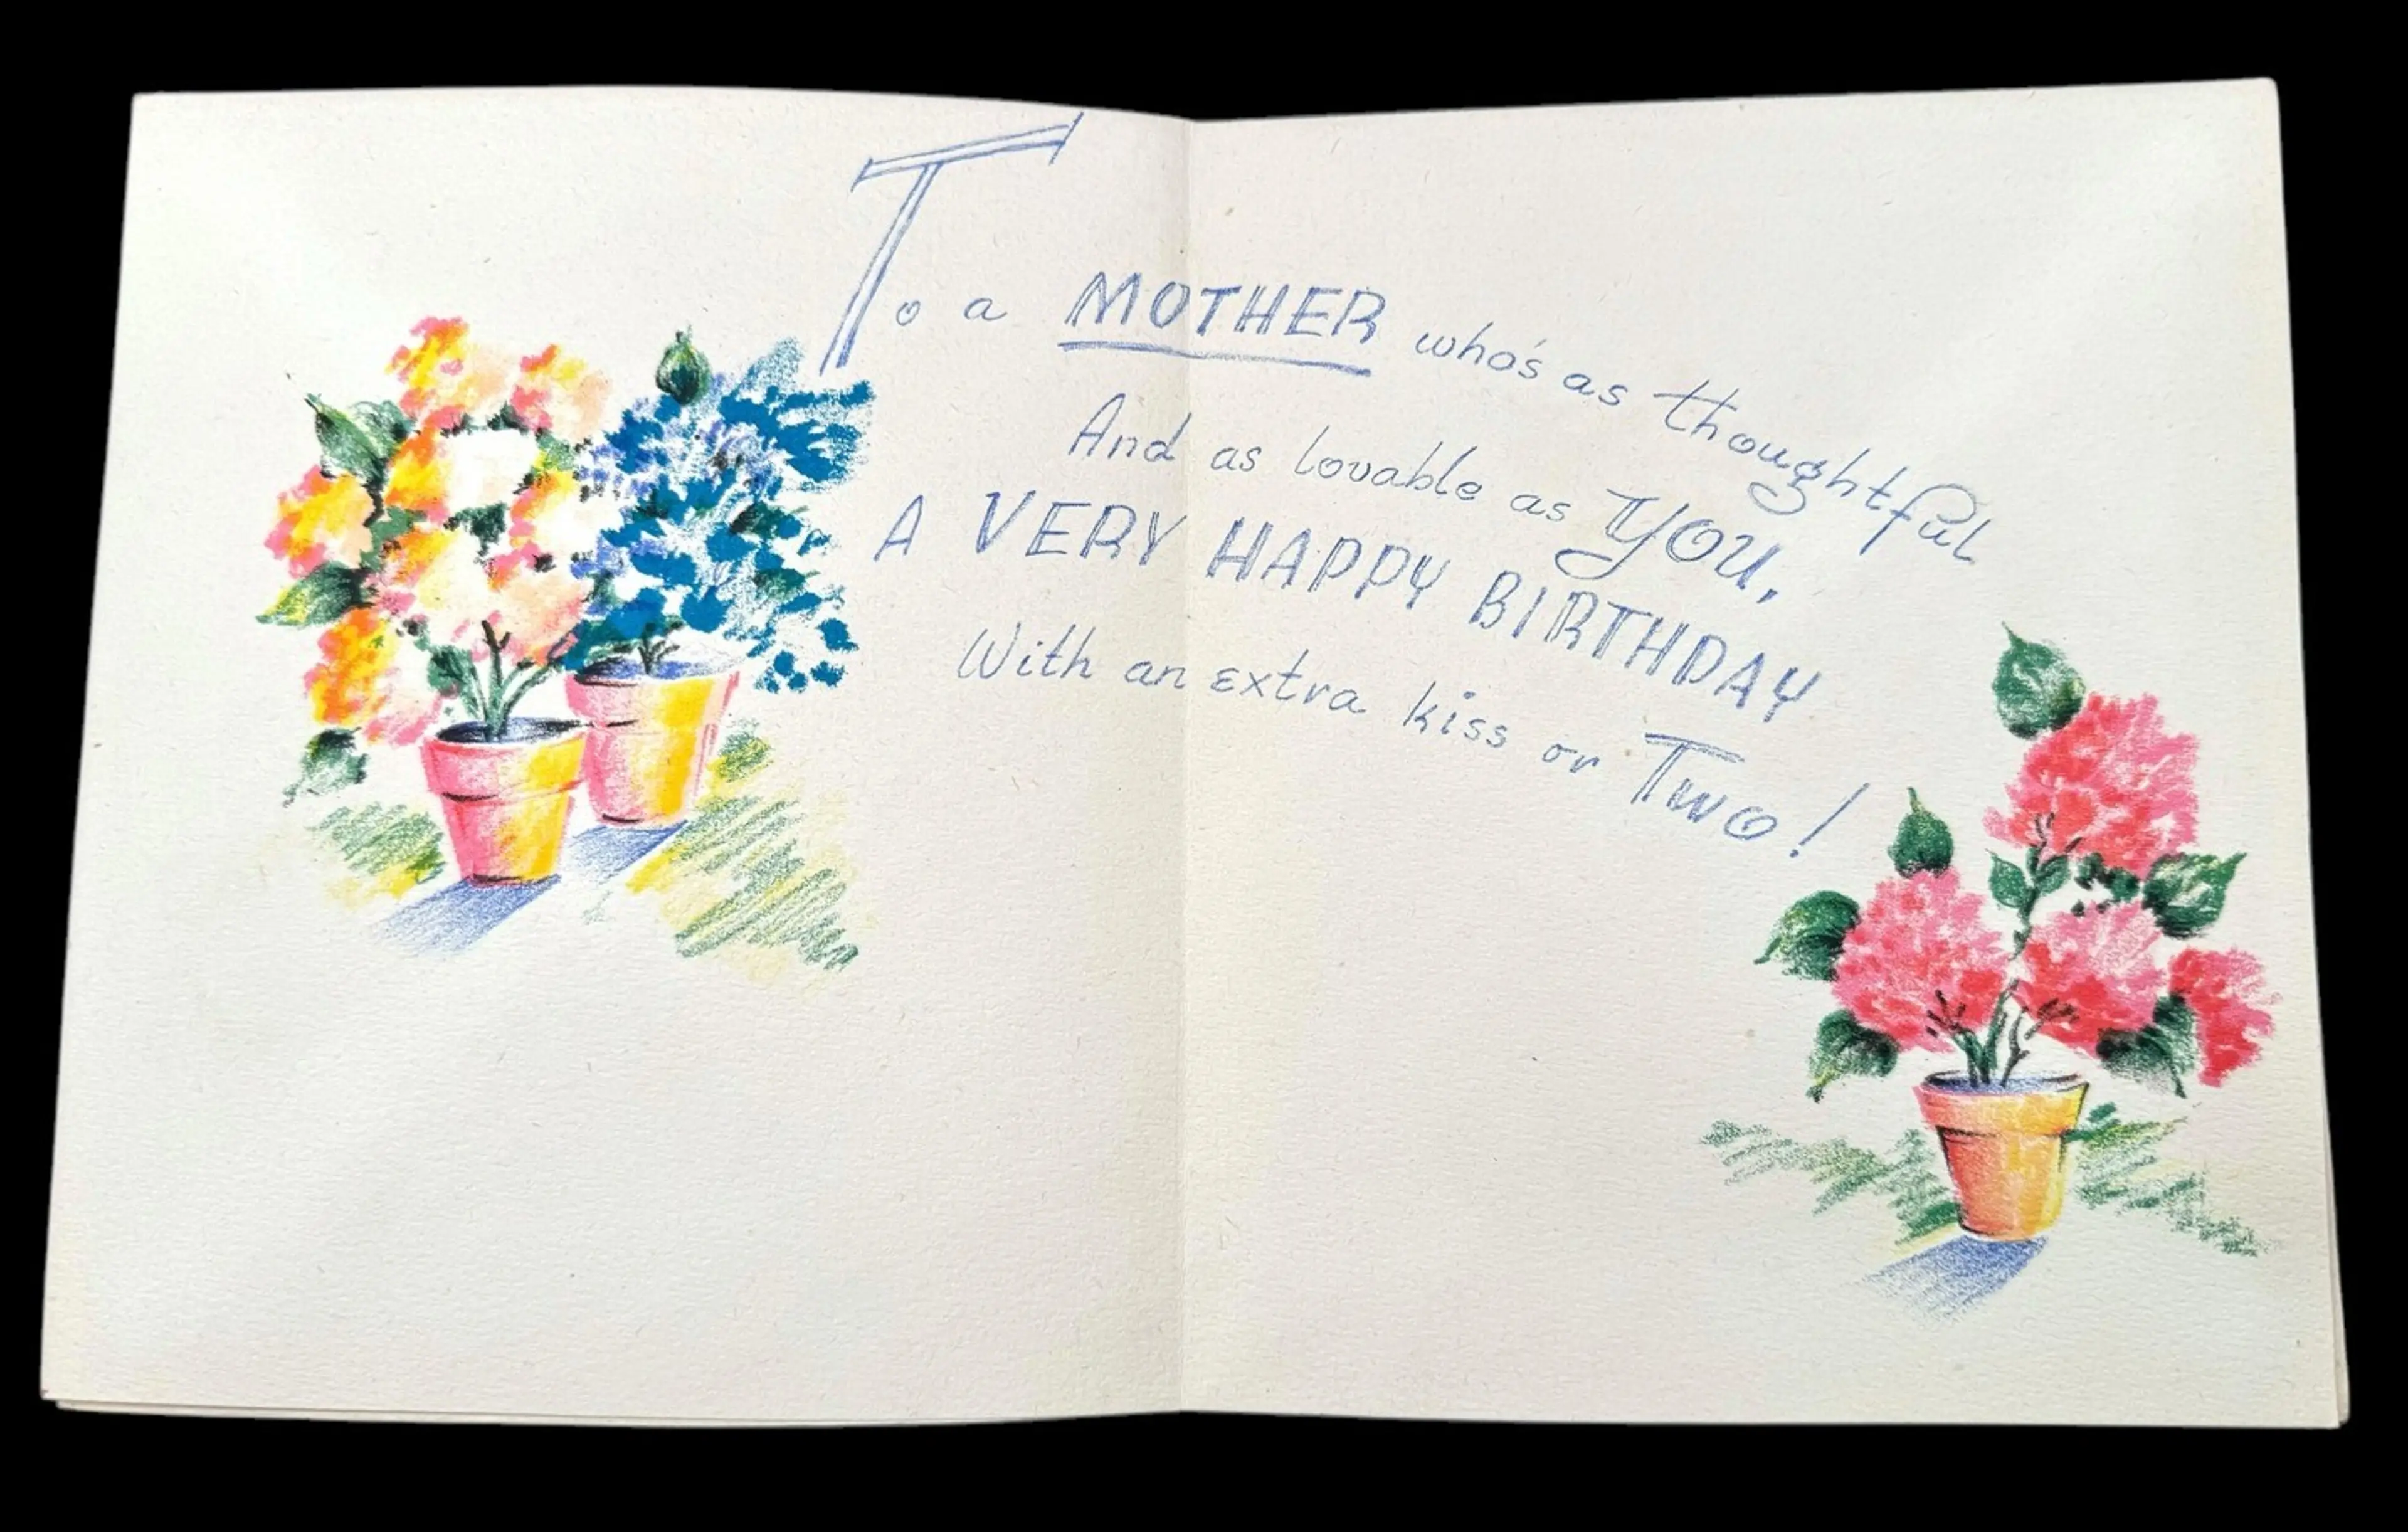 To a MOTHER who's as thoughtful
And as lovable as YOU,
A VERY HAPPY BIRTHDAY
With an extra kiss or Two!